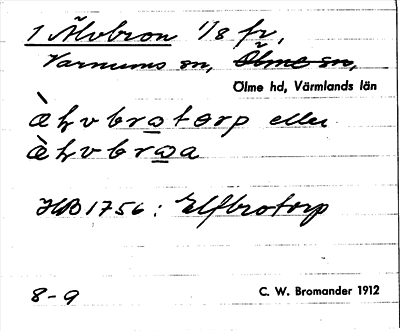 1 Älvbron 1/8 fr,
Varnums sn, Ölme sn,
Ölme hd, Värmlands län
æ̀ⱡvbrotorp eller
æ̀ⱡvbroa
HB 1756: Elfbrotorp
8-9
C. W. Bromander 1912